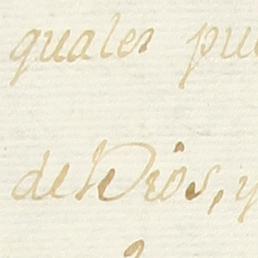 quales pu
de Dios, y